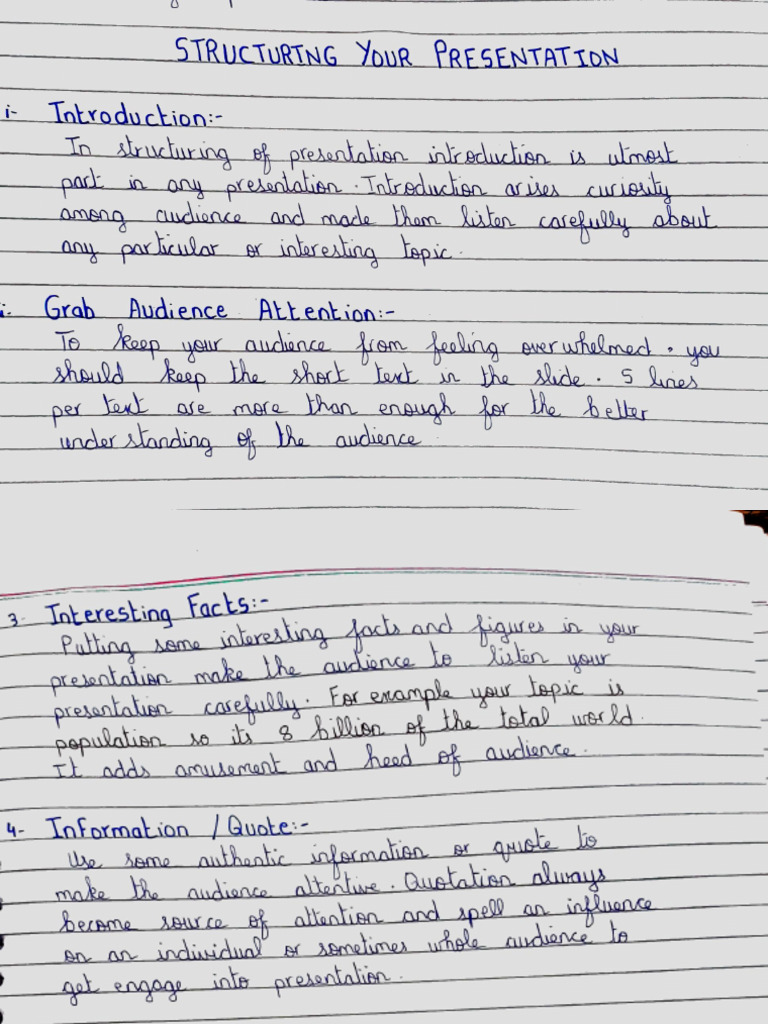 STRUCTURING YOUR PRESENTATION
i- Introduction:-
In structuring of presentation introduction is utmost
part in any presentation. Introduction arises curiosity
among audience and made them listen carefully about
any particular or interesting topic.
i- Grab Audience Attention:-
To keep your audience from feeling overwhelmed. you
should keep the short text in the slide. 5 lines
per text are more than enough for the better
understanding of the audience
3- Interesting Facts:-
Putting some interesting facts and figures in your
presentation make the audience to listen your
presentation carefully. For example your topic is
population so its 8 billion of the total world.
It adds amusement and heed of audience.
4- Information / Quote:-
Use some authentic information or quote to
make the audience attentive. Quotation always
become source of attention and spell an influence
on an individual or sometimes whole audience to
get engage into presentation.